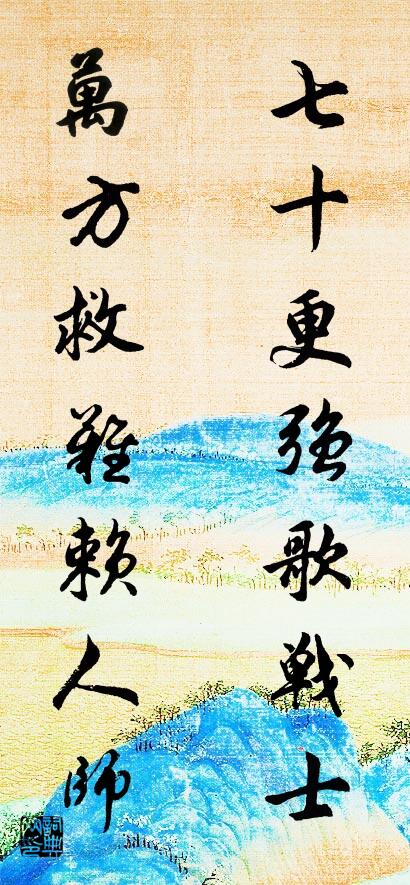 七十更強歌戦士
萬方救難賴人師